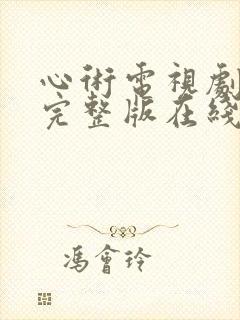 心術電視劇
完整版在綫
馮會玲